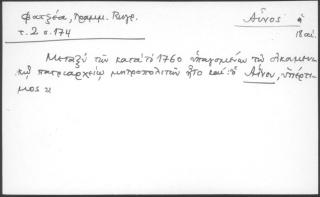 Φατζέα, Γραμμ. Κυγρ. Αἶνος ἡ
τ. 2 σ. 174 18 αι.
Μεταξὺ τῶν κατὰ τὸ 1760 ὑπαγομένων τῷ οἰκουμενι-
κῷ πατριαρχείῳ μητροπολιτῶν ἦτο καὶ ὁ Αἴνου, ὑπέρτι-
μος